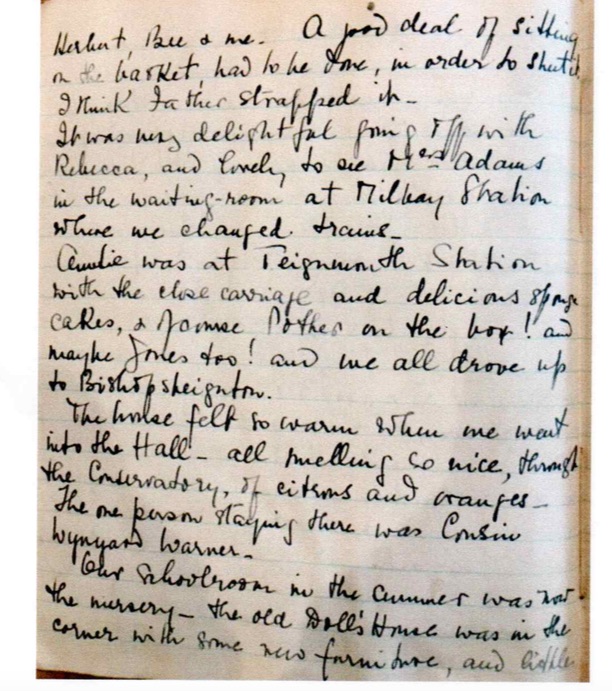 Herbert, Bee & me. A good deal of sitting
on the basket, had to be done, in order to shut it,
I think Father strapped it -
It was very delightful going off with
Rebecca, and lovely to see Mrs Adams
in the waiting-room at Millbay Station
where we changed trains -
Auntie was at Teignmouth Station
with the close carriage and delicious sponge
cakes, & of course Pother on the box! and
maybe Jones too! and we all drove up
to Bishopsteignton.
The house felt so warm when we went
into the Hall - all smelling so nice, through
the Conservatory, of citrons and oranges -
The one person staying there was Cousin
Wynyard Warner -
Our Schoolroom in the summer was now
the nursery - the old Doll's House was in the
corner with some new furniture, and little